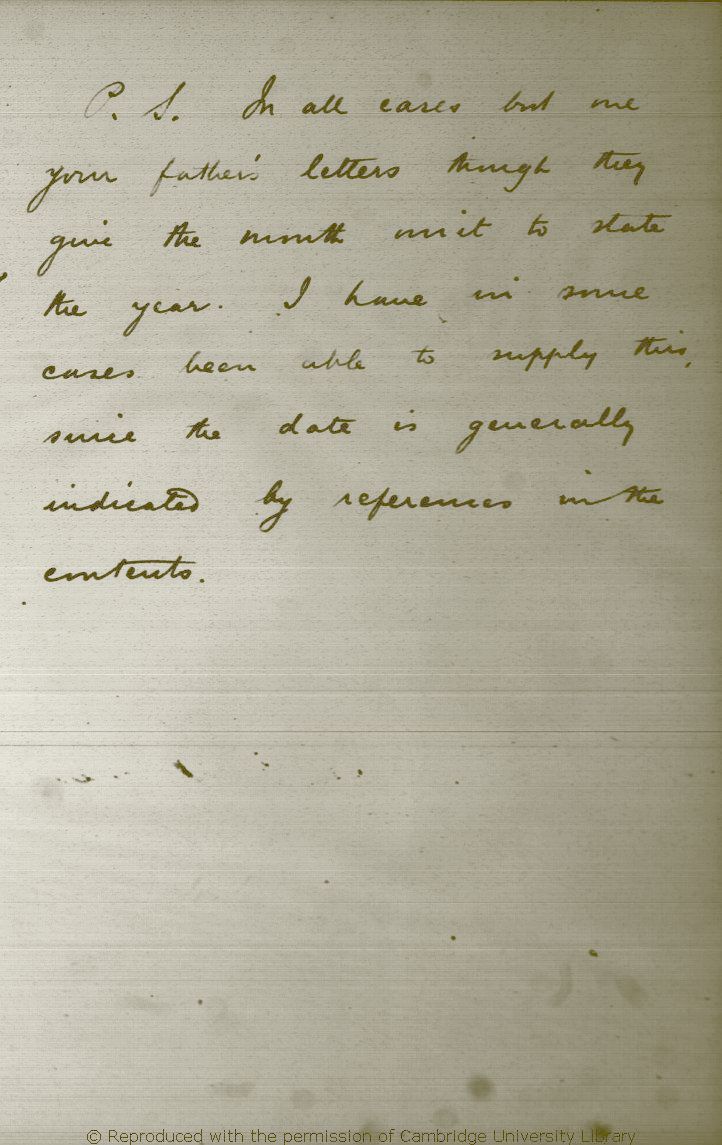 P. S. In all cases but one
your father's letters though they
give the month omit to state
the year. I have in some
cases been able to supply this,
since the date is generally
indicated by references in the
contents.
© Reproduced with the permission of Cambridge University Library